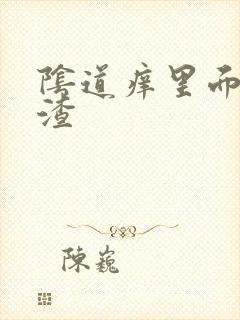 陰道痒里而
渣
陳巍